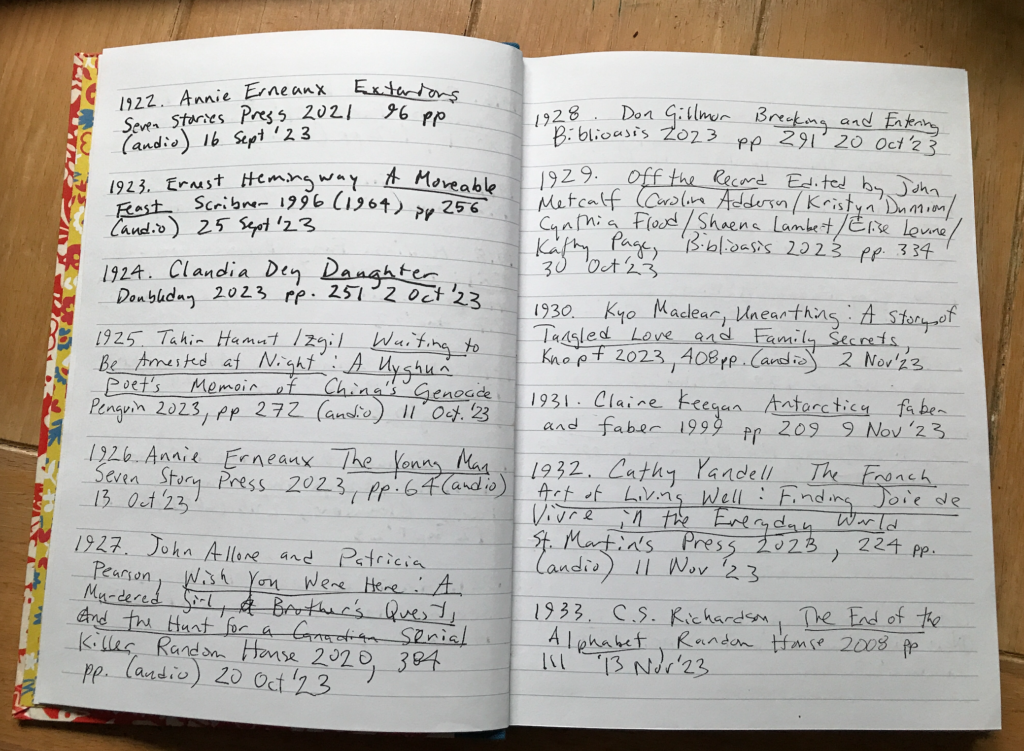 1922. Annie Erneaux Exteriors
Seven Stories Press 2021 96 pp
(audio) 16 Sept '23
1923. Ernest Hemingway A Moveable
Feast Scribner 1996 (1964) pp 256
(audio) 25 Sept '23
1924. Claudia Dey Daughter
Doubleday 2023 pp. 251 2 Oct '23
1925. Tahir Hamut Izgil Waiting to
Be Arrested at Night : A Uyghur
Poet's Memoir of China's Genocide
Penguin 2023, pp 272 (audio) 11 Oct. '23
1926. Annie Erneaux The Young Man
Seven Story Press 2023, pp. 64 (audio)
13 Oct '23
1927. John Allore and Patricia
Pearson, Wish You Were Here : A
Murdered Girl, a Brother's Quest,
and the Hunt for a Canadian Serial
Killer, Random House 2020, 384
pp. (audio) 20 Oct '23
1928. Don Gillmor Breaking and Entering
Biblioasis 2023 pp 291 20 Oct '23
1929. Off the Record Edited by John
Metcalf (Caroline Adderson/Kristyn Dunnion/
Cynthia Flood/Shaena Lambert/Elise Levine/
Kathy Page, Biblioasis 2023 pp. 334
30 Oct '23
1930. Kyo Maclear, Unearthing : A Story of
Tangled Love and Family Secrets,
Knopf 2023, 408 pp. (audio) 2 Nov '23
1931. Claire Keegan Antarctica faber
and faber 1999 pp 209 9 Nov '23
1932. Cathy Yandell The French
Art of Living Well : Finding Joie de
Vivre in the Everyday World
St. Martin's Press 2023, 224 pp.
(audio) 11 Nov '23
1933. C.S. Richardson, The End of the
Alphabet, Random House 2008 pp
'13 Nov '23